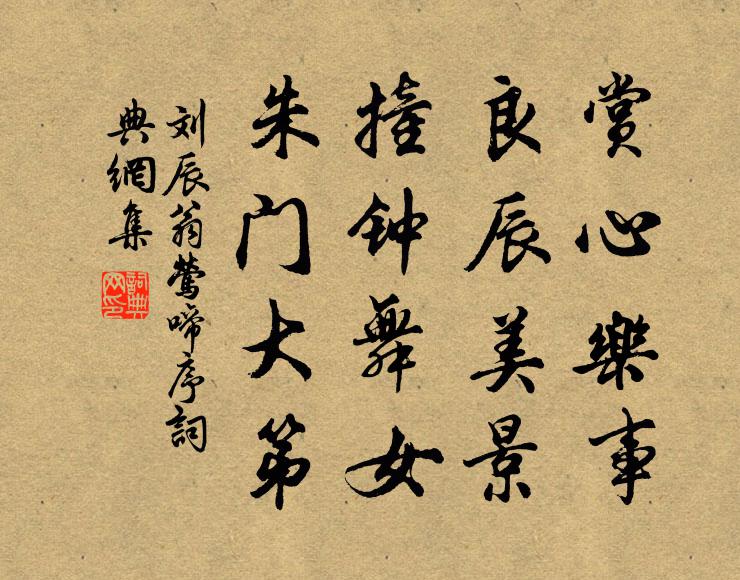 赏心樂事
良辰美景
撞钟舞女
朱门大第
刘辰翁莺啼序詞
典網集
詞典
网印